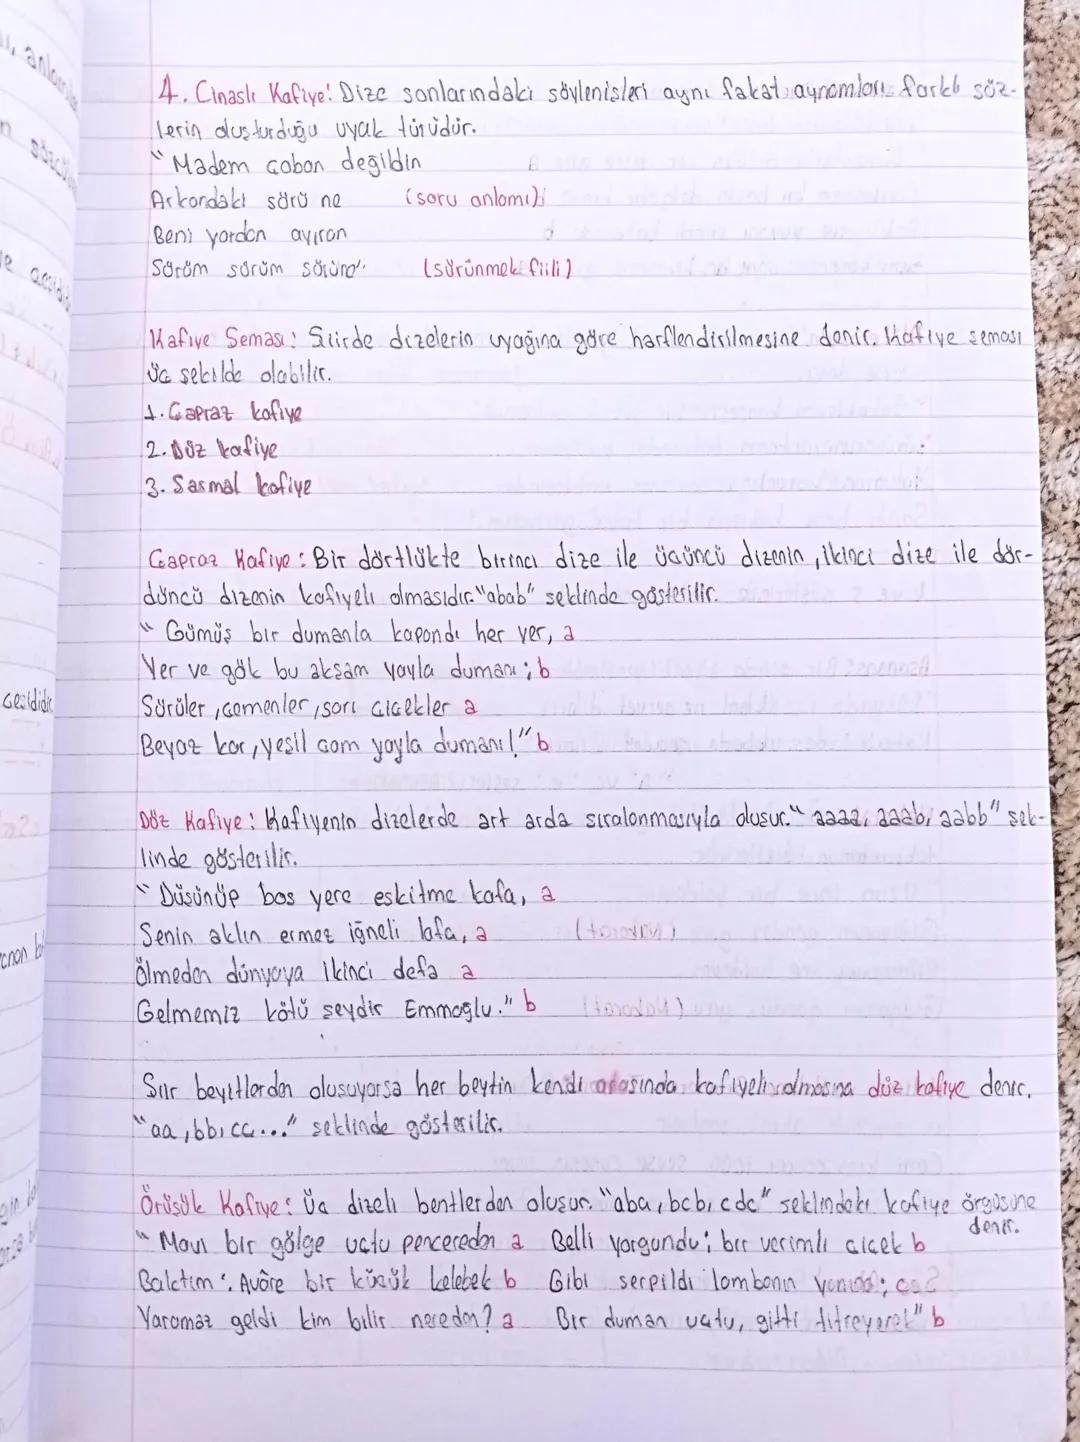 4. Cinaslı Kafiye: Dize sonlarındaki söylenisleri aynı fakat aynamları farklı söz-
lerin oluşturduğu uyak türüdür.
"Madem coban değildin
Arkandaki sürü ne (soru anlamı)
Beni yardan ayıran
Sürüm sürüm sürüne" (sürünmek fiili)
Kafiye Seması: Siirde dizelerin uyağına göre harflendirilmesine denir. Kafiye seması
üc sekilde olabilir.
1. Capraz kafiye
2. Düz kafiye
3. Sarmal kafiye
Capraz Kafiye: Bir dörtlükte birinci dize ile ücüncü dizenin, ikinci dize ile dör-
düncü dizenin kafiyeli olmasıdır. "abab" seklinde gösterilir.
"Gümüş bir dumanla kapandı her yer, a
Yer ve gök bu aksam yayla dumanı; b
Sürüler, camenler, sarı cicekler a
Beyaz kar, yesil cam yayla dumanı!" b
Düz Kafiye: Kafiyenin dizelerde art arda sıralanmasıyla olusur. "aaaa, aaab, aabb" sek-
linde gösterilir.
"Düsünüp bos yere eskitme kafa, a
Senin aklın ermez iğneli lafa, a
Ölmeden dünyaya ikinci defa a
Gelmemiz kötü seydir Emmoglu." b
Siir beyitlerden olusuyorsa her beytin kendi arasında kafiyeli olmasına düz kafiye denir.
"aa, bb, cc..." seklinde gösterilir.
Örüsük Kafiye: Üc dizeli bentlerden oluşur. "aba, bcb, cdc" seklindeki kafiye örgüsüne
denir.
"Mavi bir gölge uctu pencereden a Belli yorgundu; bir verimli cicek b
Baktım: Avâre bir kücük kelebek b Gibi serpildi lambanın yanına; c
Yaramaz geldi kim bilir nereden? a Bir duman uctu, gitti titreyerek" b
gesididir.